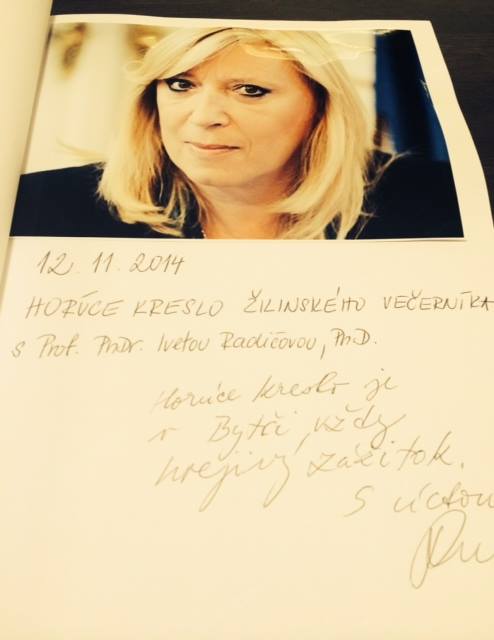 12.11.2014
HORÚCE KRESLO ŽILINSKÉHO VEČERNÍKA
s Prof. PhDr. Ivetou Radičovou, PhD.
Horúce kreslo je
v Bytči vždy
hrejivý zážitok.
S úctou